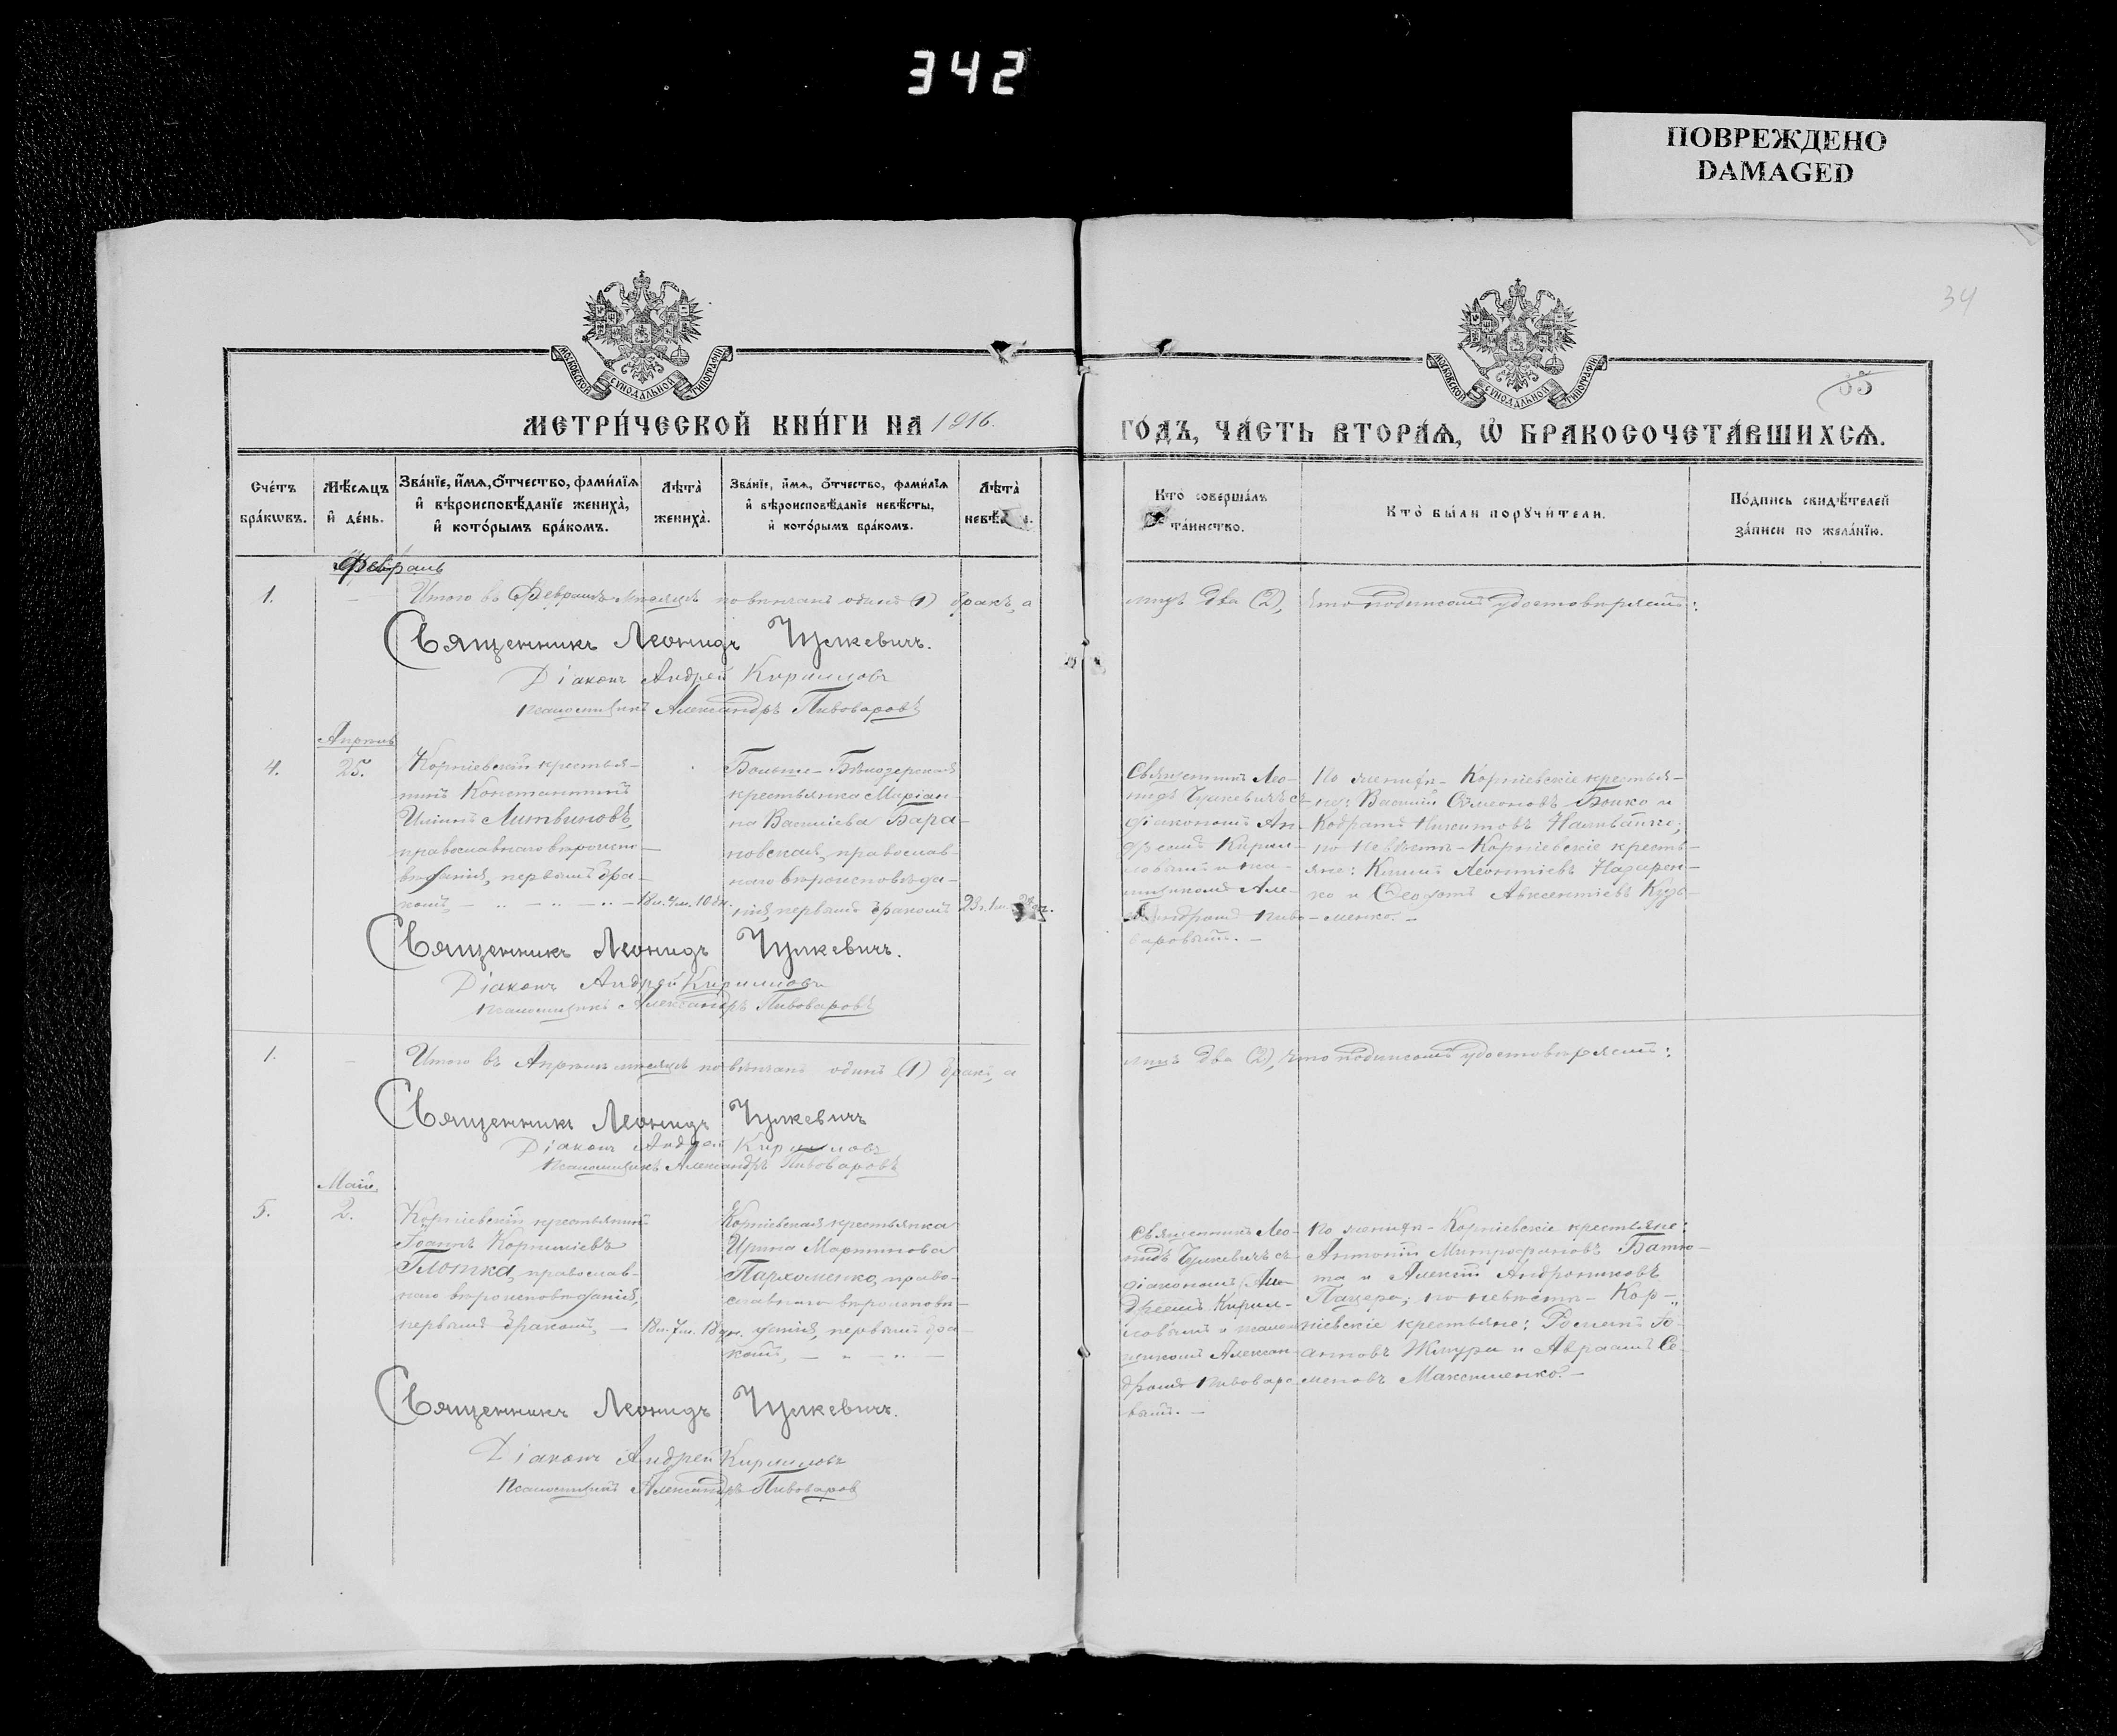 342
ПОВРЕЖДЕНО
DAMAGED
34
35
МОСКОВСКОЙ СѴНОДАЛЬНОЙ ТИПОГРАФІИ
МОСКОВСКОЙ СѴНОДАЛЬНОЙ ТИПОГРАФІИ
МЕТРИ́ЧЕСКОЙ КНИ́ГИ НА 1916.
ГО́ДЪ, ЧА́СТЬ ВТОРА́Ѧ, Ѡ҆ БРАКОСОЧЕТА́ВШИХСѦ.
Сче́тъ бра́кѡвъ.
Мѣ́сѧцъ и҆ де́нь.
Зва́нїе, и҆́мѧ, ѻ҆́тчество, фами́лїѧ
и҆ вѣроисповѣ́данїе жениха̀,
и҆ кото́рымъ бра́комъ.
Лѣта̀ жениха̀.
Зва́нїе, и҆́мѧ, ѻ҆́тчество, фами́лїѧ
и҆ вѣроисповѣ́данїе невѣ́сты,
и҆ кото́рымъ бра́комъ.
Лѣта̀
Кто̀ соверша́лъ
та́инство.
Кто̀ бы́ли порꙋчи́тели.
По́дпись свидѣ́телей
за́писи по жела́нїю.
Февраль
1. — Итого въ Февралѣ мѣсяцѣ повѣнчанъ одинъ (1) бракъ, а
лицъ два (2), что подписомъ удостовѣряемъ:
Священникъ Леонидъ Чулкевичъ.
Діаконъ Андрей Кирилловъ
Псаломщикъ Александръ Пивоваровъ
Апрѣль
4. 25.
Корніевскій крестья-
нинъ Константинъ
Иліинъ Литвиновъ,
православнаго вѣроиспо-
вѣданія, первымъ бра-
комъ, —
18 л. 4 м. 10 дн.
Больше-Бѣлозерская
крестьянка Маріан-
на Василіева Бара-
новская, православ-
наго вѣроисповѣда-
нія, первымъ бракомъ
23 л. 1 м.
Священникъ Лео-
нидъ Чулкевичъ съ
діакономъ Ан-
дреемъ Кирил-
ловымъ и пса-
ломщикомъ Але-
ксандромъ Пиво-
варовымъ. —
По женихѣ - Корніевскіе крестья-
не: Василій Сѵмеоновъ Бойко и
Кодратъ Никитовъ Наливайко;
по невѣстѣ - Корніевскіе кресть-
яне: Леонтіевъ Назарен-
ко и Авксентіевъ Кузь-
менко. —
Священникъ Леонидъ Чулкевичъ.
Діаконъ Андрей Кирилловъ
Псаломщикъ Александръ Пивоваровъ
1. — Итого въ Апрѣлѣ мѣсяцѣ повѣнчанъ одинъ (1) бракъ, а
лицъ два (2), что подписомъ удостовѣряемъ:
Священникъ Леонидъ Чулкевичъ
Діаконъ Андрей Кирилловъ
Псаломщикъ Александръ Пивоваровъ
Май.
5. 2.
Корніевскій крестьянинъ
Іоаннъ Корниліевъ
Плотка, православ-
наго вѣроисповѣданія,
первымъ бракомъ, —
18 л. 7 м. 18 дн.
Корніевская крестьянка
Ирина Мартинова
Пархоменко, право-
славнаго вѣроисповѣ-
данія, первымъ бра-
комъ, —
Священникъ Лео-
нидъ Чулкевичъ съ
діакономъ Ан-
дреемъ Кирил-
ловымъ и псалом-
щикомъ Алексан-
дромъ Пивоваро-
вымъ. —
По женихѣ - Корніевскіе крестьяне:
Антоній Митрофановъ
и Алексій Андрониковъ
по невѣстѣ - Кор-
ніевскіе крестьяне: Романъ
и Авраамъ Се-
меновъ Максименко. —
Священникъ Леонидъ Чулкевичъ.
Діаконъ Андрей Кирилловъ
Псаломщикъ Александръ Пивоваровъ